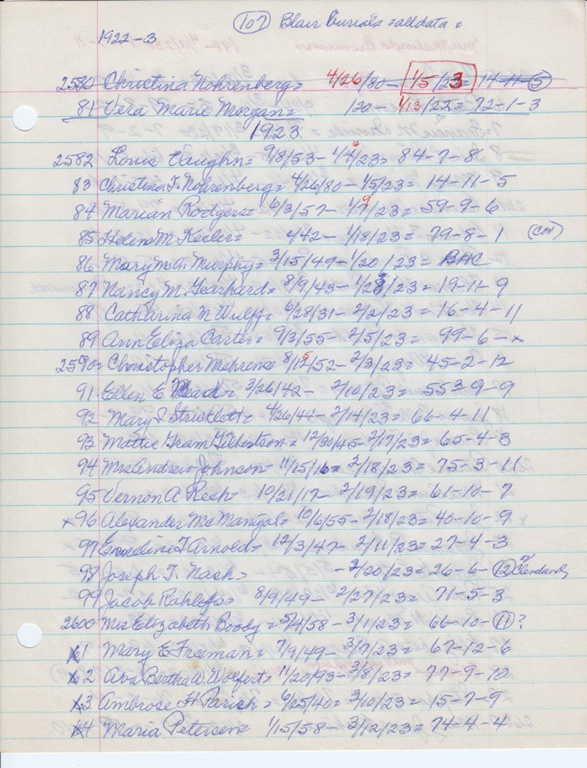 107 Blair Burials = alldata =
1922-3
2580 Christina Nohrenberg = 4/26/80 - 1/5/23 = 14-11-5
81 Vera Marie Morgan = 120 - 1/13/22 = 72-1-3
1923
2582 Louis Vaughn = 9/8/53 - 1/4/23 = 84-7-8
83 Christina F. Nohrenberg = 4/26/80 - 1/5/23 = 14-11-5
84 Marian Rodgers = 6/3/57 - 1/9/23 = 59-9-6
85 Helen M. Keeler = 1/42 - 1/18/23 = 79-8-1
86 Mary Murphy = 3/15/49 - 1/20/23 = BHC
87 Nancy M. Gearhard = 8/9/43 - 1/28/23 = 19-11-9
88 Catharina N Wulff = 6/28/31 - 2/2/23 = 16-4-11
89 Ann Eliza Carter = 9/3/55 - 2/5/23 = 99-6-x
2590 = Christopher Mehrens = 8/15/52 - 2/3/23 = 45-2-12
91 Ellen E = 3/26/42 - 2/10/23 = 553-9-9
92 Mary S = 4/26/44 - 2/14/23 = 66-4-11
93 Mattie Gilbertson = 12/30/45 - 2/17/23 = 65-4-3
94 Mrs Andrew Johnson = 11/15/16 = 2/18/23 = 75-3-11
95 Vernon A Reep = 10/21/17 - 2/19/23 = 61-10-7
x 96 Alexander McManigal = 10/6/55 - 2/18/23 = 40-10-9 x
97 T Arnold = 12/3/47 - 2/11/23 = 27-4-3
98 Joseph T. Nash = - 2/20/23 = 26-6-12
99 Jacob Rahlfs = 8/9/49 - 2/27/23 = 71-5-3
2600 Mrs Elizabeth Boody = 5/4/58 - 3/1/23 = 66-10-11 ?
x 1 Mary E Freeman = 7/9/49 - 3/7/23 = 67-12-6
x 2 Ava Bertha W. Wolfert = 11/20/93 - 3/8/23 = 77-9-10
x 3 Ambrose H Parish = 6/25/40 = 3/10/23 = 15-7-9
x 4 Maria Petersen = 1/15/58 - 3/12/23 = 74-4-4